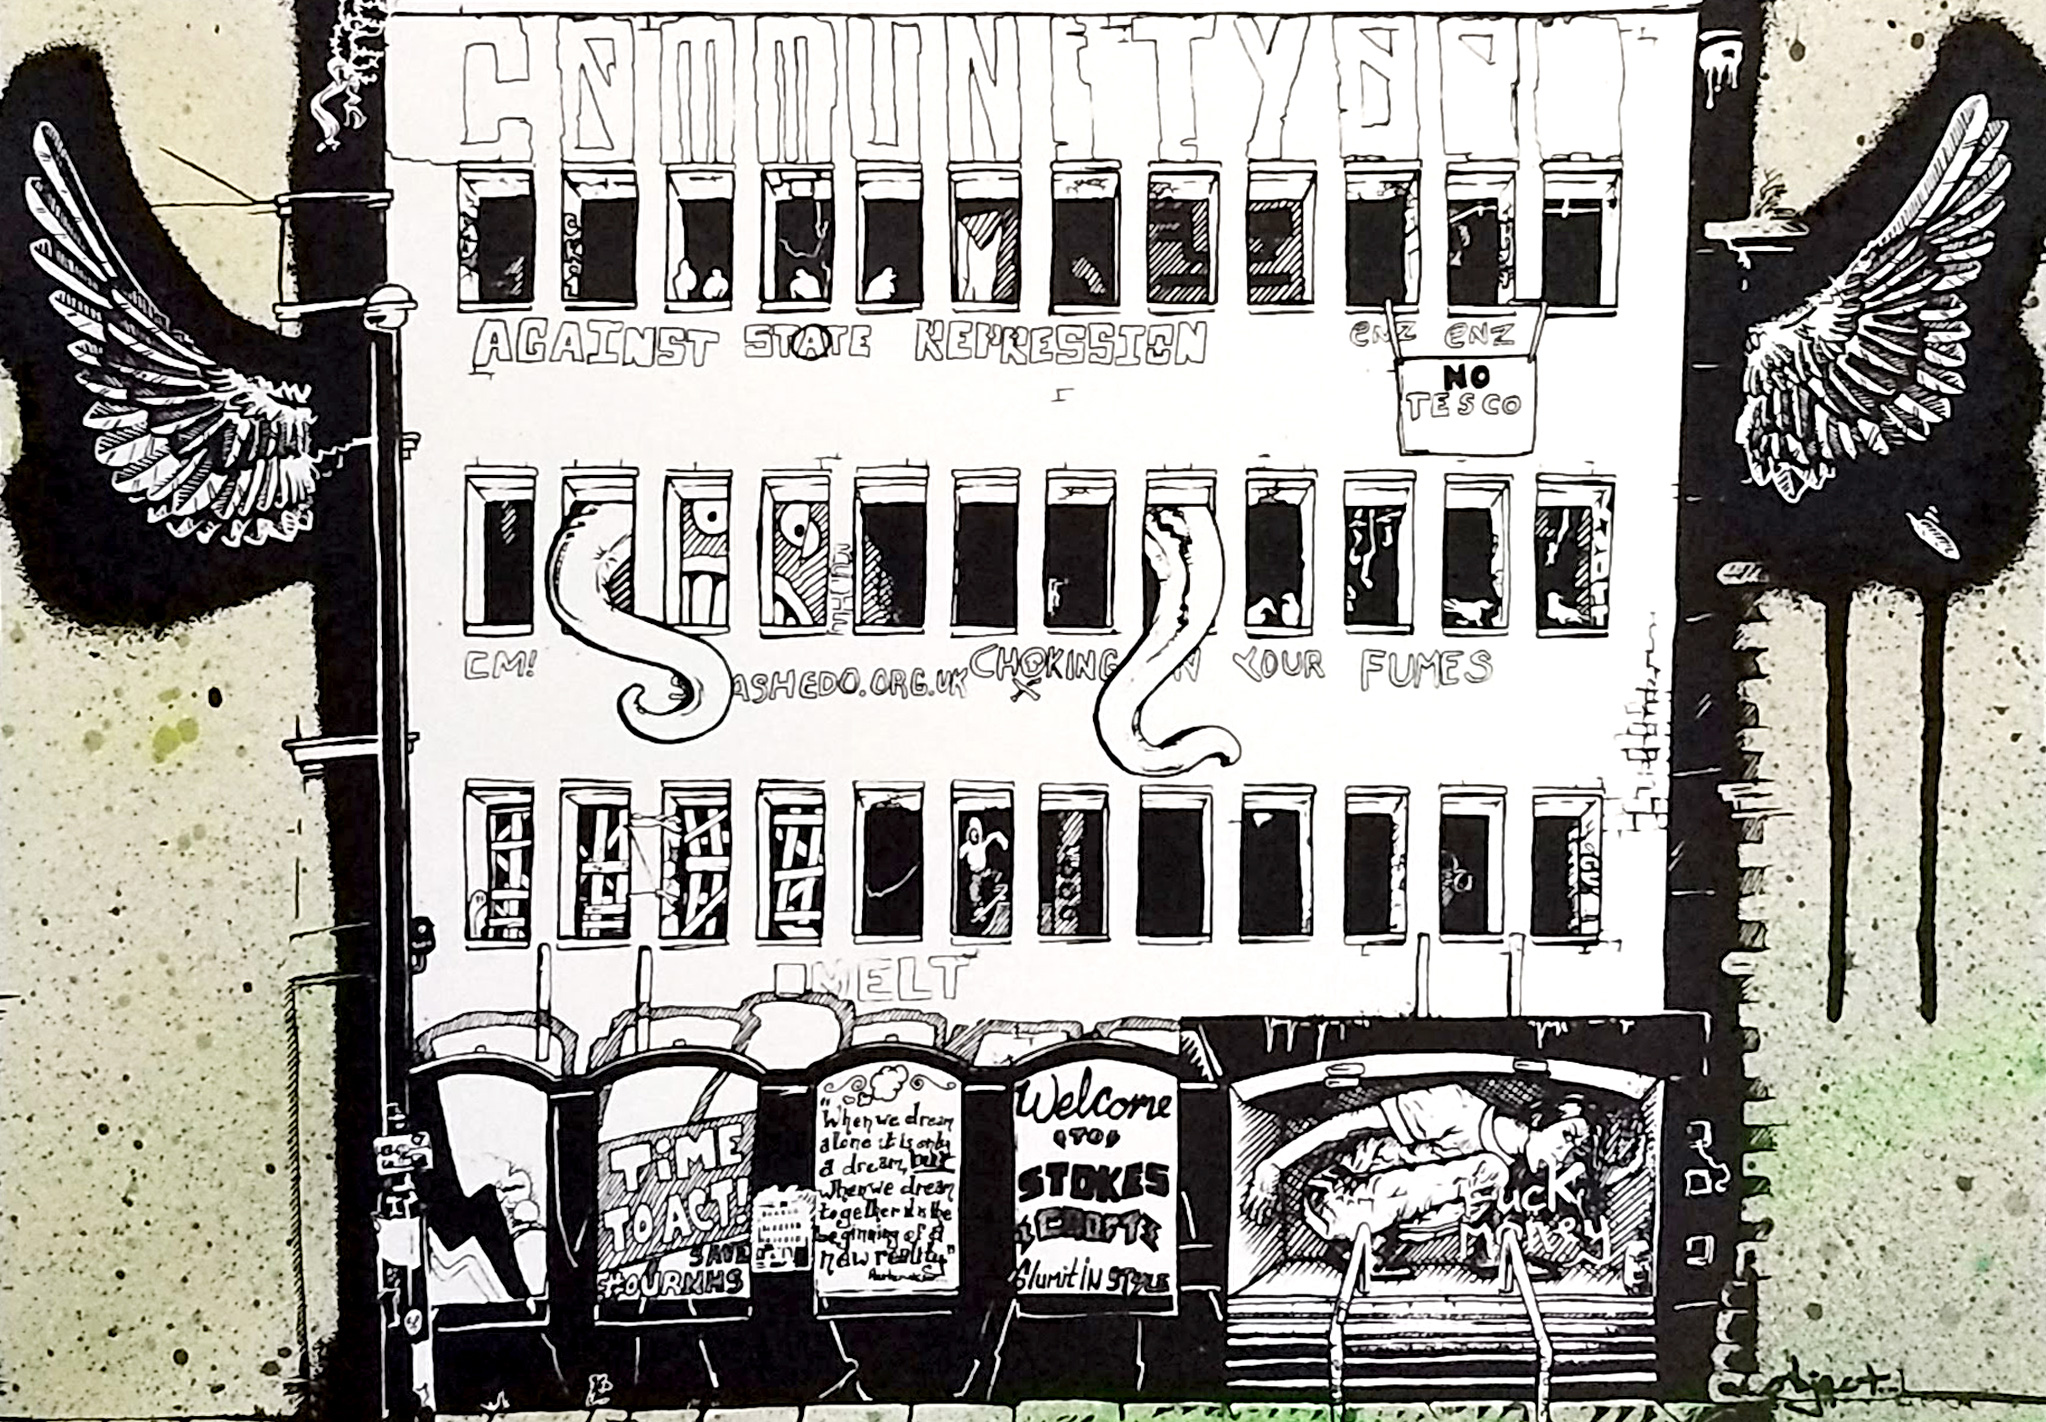 COMMUNITY
AGAINST STATE REPRESSION
ENZ ENZ
NO
TESCO
CM!
ASHEDO.ORG.UK
CHOKING ON YOUR FUMES
MELT
TIME
TO ACT!
SAVE
#OURNHS
"When we dream
alone it is only
a dream, but
when we dream
together it is the
beginning of a
new reality"
Welcome
TO
STOKES
CROFT
Slum it IN STYLE
Fuck
Money
object...